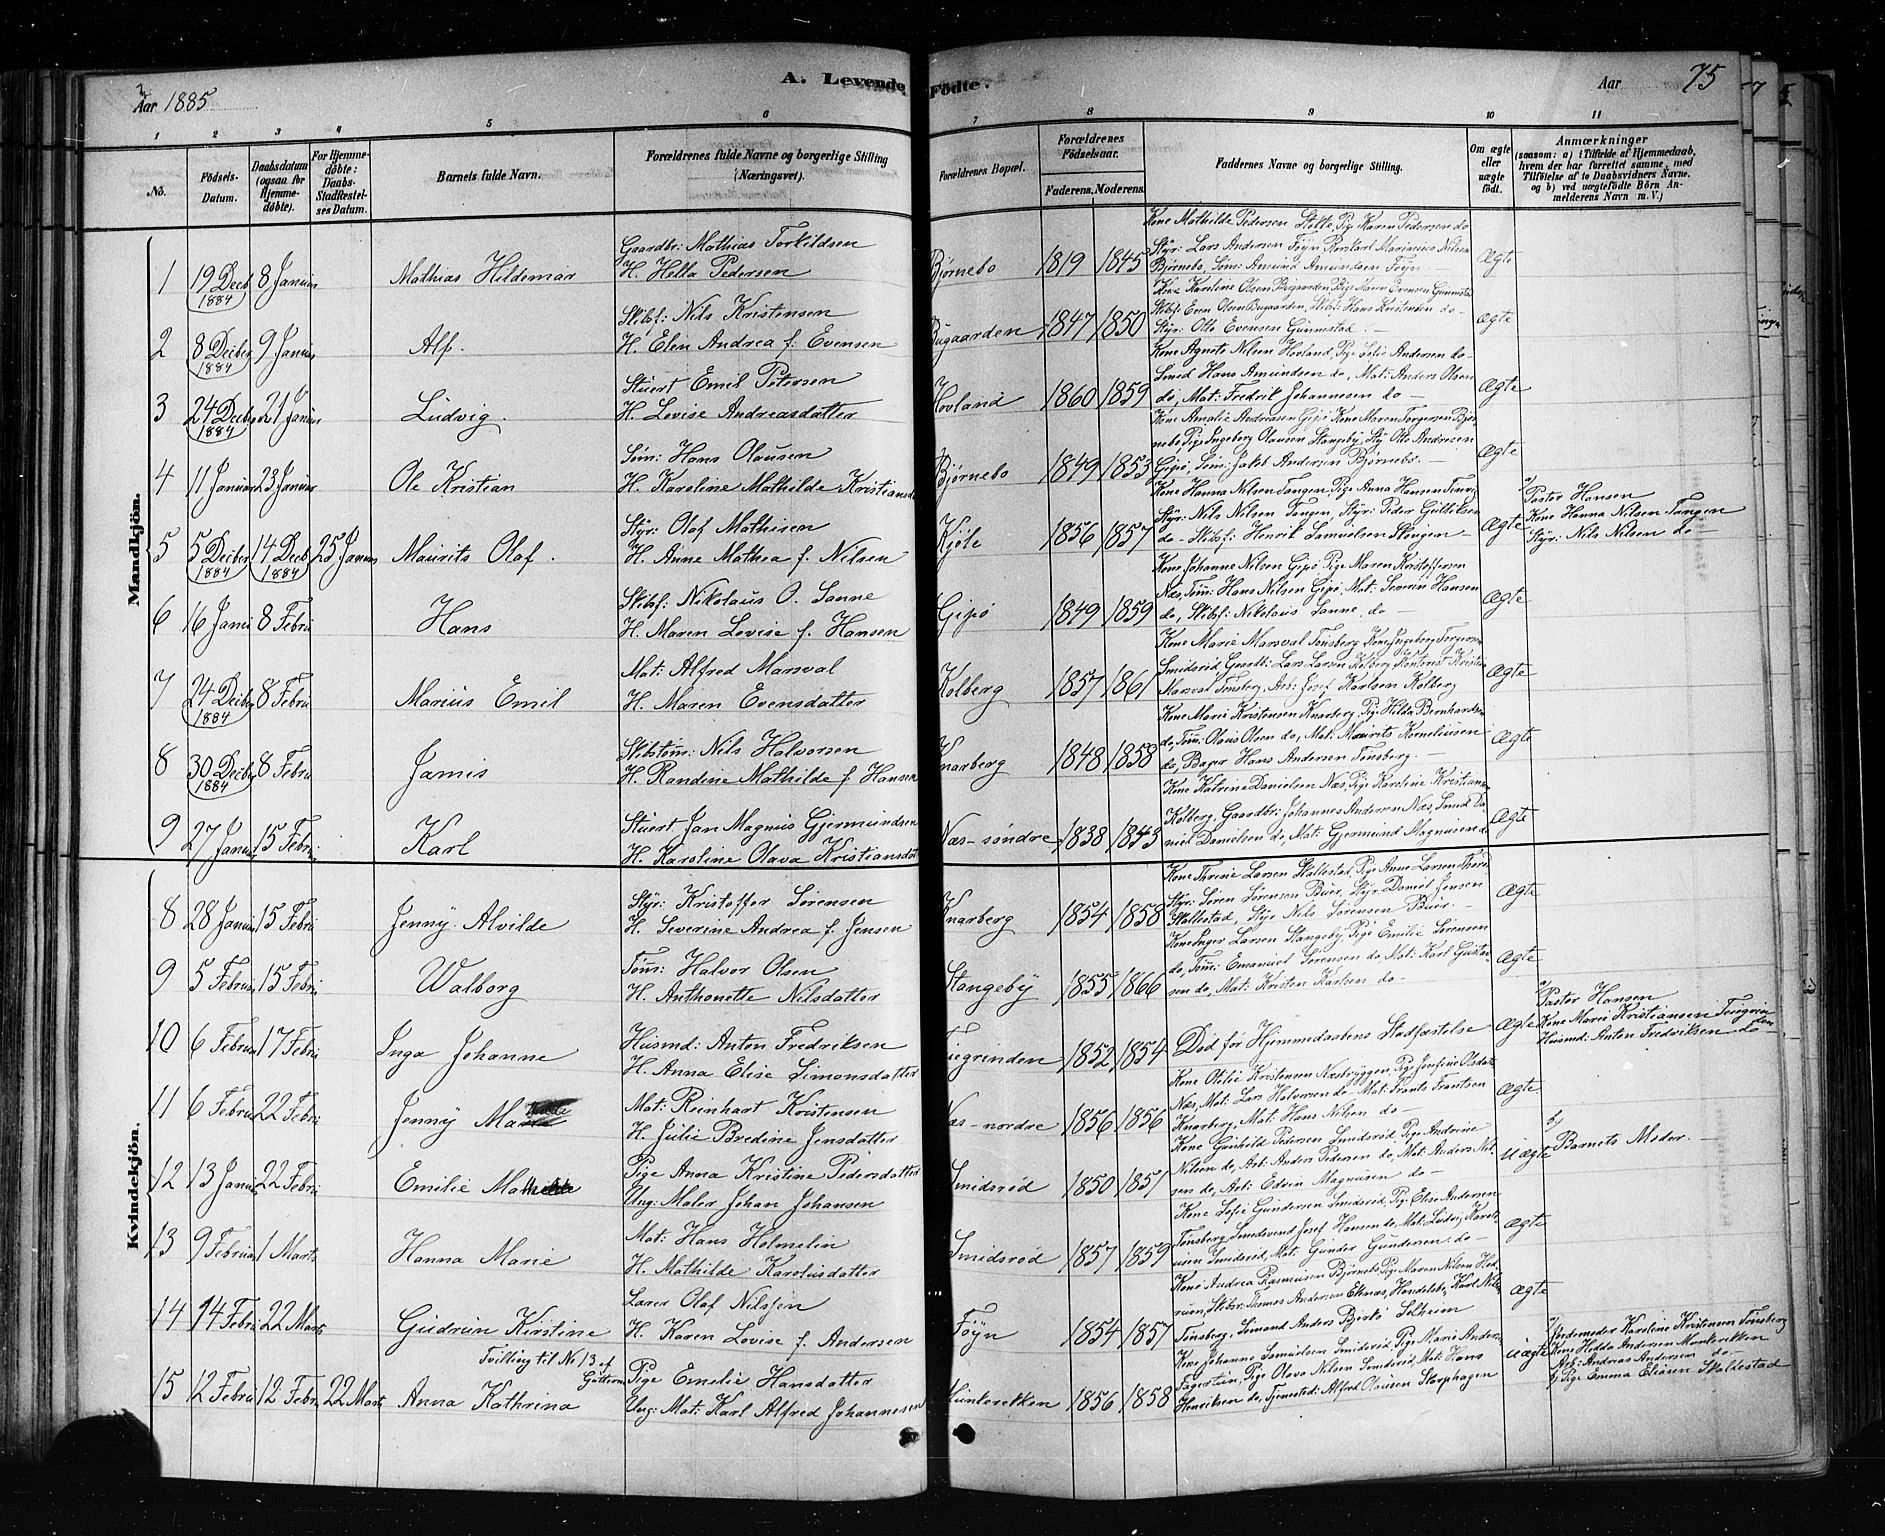 Aar 1885
A. Levende Fødte.
Aar 75
1 2 3 4 5 6 7 8 9 10 11
No.
Fødsels-Datum.
Daabsdatum (ogsaa for Hjemme-døbte).
For Hjemme-døbte: Daabs-Stadfæstel-ses Datum.
Barnets fulde Navn.
Forældrenes fulde Navne og borgerlige Stilling (Næringsvei).
Forældrenes Bopæl.
Forældrenes Fødselsaar.
Faderens. Moderens.
Faddernes Navne og borgerlige Stilling.
Om ægte eller uægte født.
Anmærkninger
(saasom: a) i Tilfælde af Hjemmedaab, hvem der har forrettet samme, med Tilføielse af to Daabsvidners Navne, og b) ved uægtefødte Børn Anmelderens Navn m. V.)
Mandkjön.
1 19 Decb 1884 8 Januar Mathias Hildemar
Gaardbr: Mathias Torkildsen
H. Hella Pedersen
Bjørnebo 1819 1845
Kone Mathilde Pedersen Stokke, Pige Karen Pedersen do
Styr: Lars Andersen Føyn, Marinius Nilsen
Bjørnebo, Søm: Amund Amundsen Føyn
Ægte
2 8 Decber 1884 9 Januar Alf.
Skibsf: Nils Kristensen
H. Elen Andrea f. Evensen
Bugaarden 1847 1850
Kone Karoline Olsen Bugaarden, Pige Maren Evensen Gunnestad
Skibsf: Even Olsen Bugaarden, Skibsf: Hans Kristensen do
Styr: Otto Evensen Gunnestad
Ægte
3 24 Decber 1884 21 Januar Ludvig.
Stuert Emil Petersen
H. Lovise Andreasdatter
Hovland 1860 1859
Kone Agnete Nilsen Hovland, Pige Sofie Andersen do
Smed Hans Amundsen do, Mat: Anders Olsen
do, Mat: Fredrik Johannesen do
Ægte
4 11 Januar 23 Januar Ole Kristian
Søm: Hans Olausen
H. Karoline Mathilde Kristiansd
Bjørnebo 1849 1853
Kone Amalie Andreasen Gipø, Kone Maren Torgersen Bjør
nebo, Pige Ingeborg Olausen Stangeby, Sty: Otto Andresen
Gipø, Søm: Jakob Andersen Bjørnebo.
Ægte
5 5 Decber 1884 14 Decb 1884 25 Januar Maurits Olaf.
Styr: Olaf Mathisen
H. Anne Mathea f. Nilsen
Kjøle 1856 1857
Kone Hanna Nilsen Tangen, Pige Anna Hansen
Styr: Nils Nilsen Tangen, Styr: Peder Gulliksen
do - Skibsf: Henrik Samuelsen Stangen
Ægte
a) Pastor Hansen
Kone Hanna Nilsen Tangen
Styr: Nils Nilsen do
6 16 Janu 8 Febru Hans
Skibsf: Nikolaus O. Sanne
H. Maren Lovise f. Hansen
Gipø 1849 1859
Kone Johanne Nilsen Gipø, Pige Maren Kristoffersen
Næs, Tøm: Hans Nilsen Gipø, Mat: Hansen
do, Skibsf: Nikolaus Sanne do
Ægte
7 24 Decber 1884 8 Febru Marius Emil
Mat: Alfred Marsval
H. Maren Evensdatter
Kolberg 1857 1861
Kone Marie Marsval Tønsberg, Kone Ingeborg Torgersen
Smidsrød, Gaardb: Lars Larsen Kolberg, Kontorist Kristian
Marsval Tønsberg, Arb: Josef Karlsen Kolberg
Ægte
8 30 Decber 1884 8 Febru Jamis
Skibstøm: Nils Halvorsen
H. Randine Mathilde f. Hansen
Knarberg 1848 1858
Kone Marie Kristensen Knarberg, Pige Hilda Bernhardsen
do, Tøm: Olaus Olsen do, Mat: Maurits Korneliusen
do, Bager Hans Andersen Tønsberg.
Ægte
9 27 Januar 15 Febru Karl
Stuert Jan Magnus Gjermundsen
H. Karoline Olava Kristiansdat
Næs-søndre 1838 1843
Kone Katrine Danielsen Næs, Pige Karoline Kristiansen
Kolberg, Gaardbr: Johannes Andersen Næs, Smed Da
niel Danielsen do, Mat: Gjermund Magnusen do
Ægte
Kvindekjön.
8 28 Januar 15 Febru Jenny Alvilde
Styr: Kristoffer Sørensen
H. Severine Andrea f. Jensen
Knarberg 1854 1858
Kone Thrine Larsen Skallestad, Pige Anne Larsen
Styr: Søren Sørensen Buer, Styr: Daniel Jensen
Skallestad, Styr Nils Sørensen Buer
Ægte
9 5 Februar 15 Febru Walborg
Tøm: Halvor Olsen
H. Anthonette Nilsdatter
Stangeby 1855 1866
Kone Inger Larsen Stangeby, Pige Emilie Sørensen
do, Tøm: Emanuel Sørensen do, Mat: Karl Gustav
sen do, Mat: Kristen Karlsen do
Ægte
10 6 Februar 17 Febru Inga Johanne
Husmd: Anton Fredriksen
H. Anna Elise Simonsdatter
Tiegrinden 1852 1854
Død før Hjemmedaabens Stadfæstelse
Ægte
a) Pastor Hansen
Kone Marie Kristiansen
Husmd: Anton Fredriksen do
11 6 Februar 22 Febru Jenny
Mat: Reinhart Kristensen
H. Julie Bredine Jensdatter
Næs-nordre 1856 1856
Kone Otilie Kristensen Næsbryggen, Pige Josefine Olsdatter
Næs, Mat: Lars Halvorsen do, Mat: Frants Frantsen
Knarberg, Mat: Hans Nilsen do
Ægte
12 13 Januar 22 Febru Emilie
Pige Anna Kristine Pedersdatter
Ung: Maler Johan Johansen
Smidsrød 1850 1851
Kone Gunhild Pedersen Smidsrød, Pige Andrine
Nilsen do, Arb: Anders Pedersen do, Mat: Anders Nil
sen do, Arb: Edvin Magnusen do
Uægte
b) Barnets Moder.
13 9 Februar 1 Marts Hanna Marie
Mat: Hans Holmelin
H. Mathilde Karolusdatter
Smidsrød 1857 1859
Kone Sofie Gundersen Smidsrød, Pige Elise Andersen
Tønsberg, Smedsvend Josef Hansen do, Mat: Ludvig
Smidsrød, Mat: Gunder Gundersen do
Ægte
14 14 Febru 22 Marts Gudrun Kirstine
Lærer Olaf Nilssen
H. Karen Lovise f. Andersen
Føyn 1854 1857
Kone Andrea Rasmusen Bjørnebo, Pige Maren Nilsen Hed
rum, Skibsr: Tomas Andersen, Handelsb: Karl Nilsen
Tønsberg, Anders Bjerkø Solheim
Ægte
Tvilling til No 13 af Gutterne
15 12 Febru 12 Febru 22 Marts Anna Kathrina
Pige Emelie Hansdatter
Ung: Mat: Karl Alfred Johannesen
Munkerekken 1856 1858
Kone Johanne Samuelsen Smidsrød, Pige Marie Anders
Fagertun, Pige Olava Nilsen Smidsrød, Mat: Hans
Henriksen do, Alfred Olausen Skarphagen
Uægte
a) Jordemoder Karoline Kristensen Tønsberg
Kone Hedda Andersen Munkerekken
Arb: Andreas Andersen do
b) Pige Emma Eliasen Skallestad